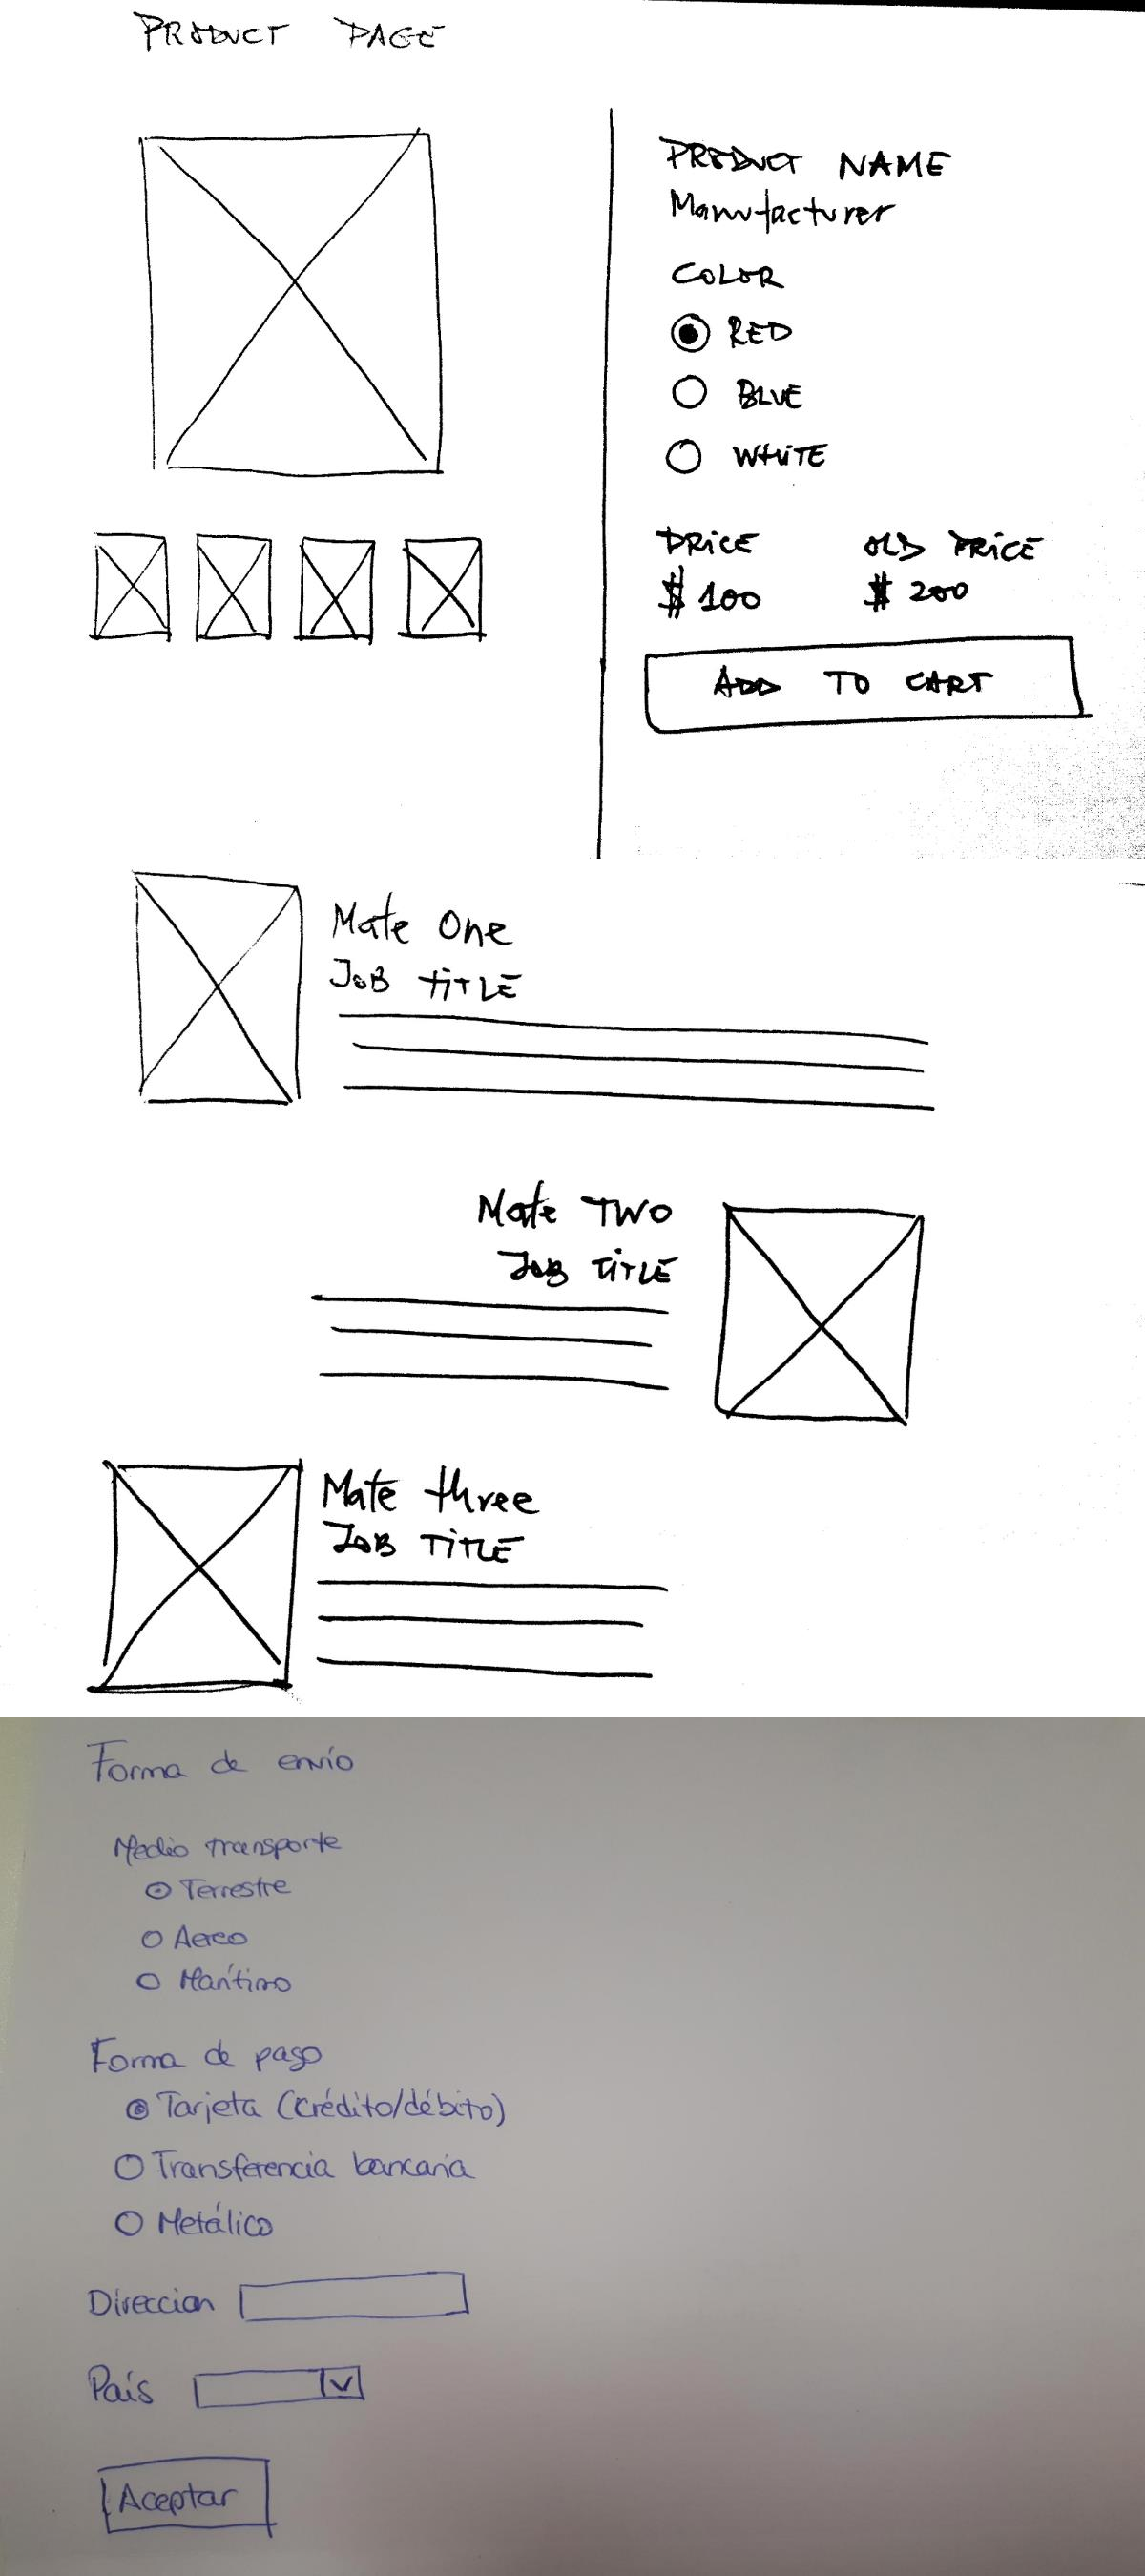 PRODUCT PAGE
PRODUCT NAME
Manufacturer
COLOR
RED
BLUE
WHITE
PRICE OLD PRICE
$100 $200
ADD TO CART
Mate One
JOB TITLE
Mate TWO
JOB TITLE
Mate three
JOB TITLE
Forma de envío
Medio transporte
Terrestre
Aereo
Marítimo
Forma de pago
Tarjeta (crédito/débito)
Transferencia bancaria
Metálico
Direccion
País
Aceptar